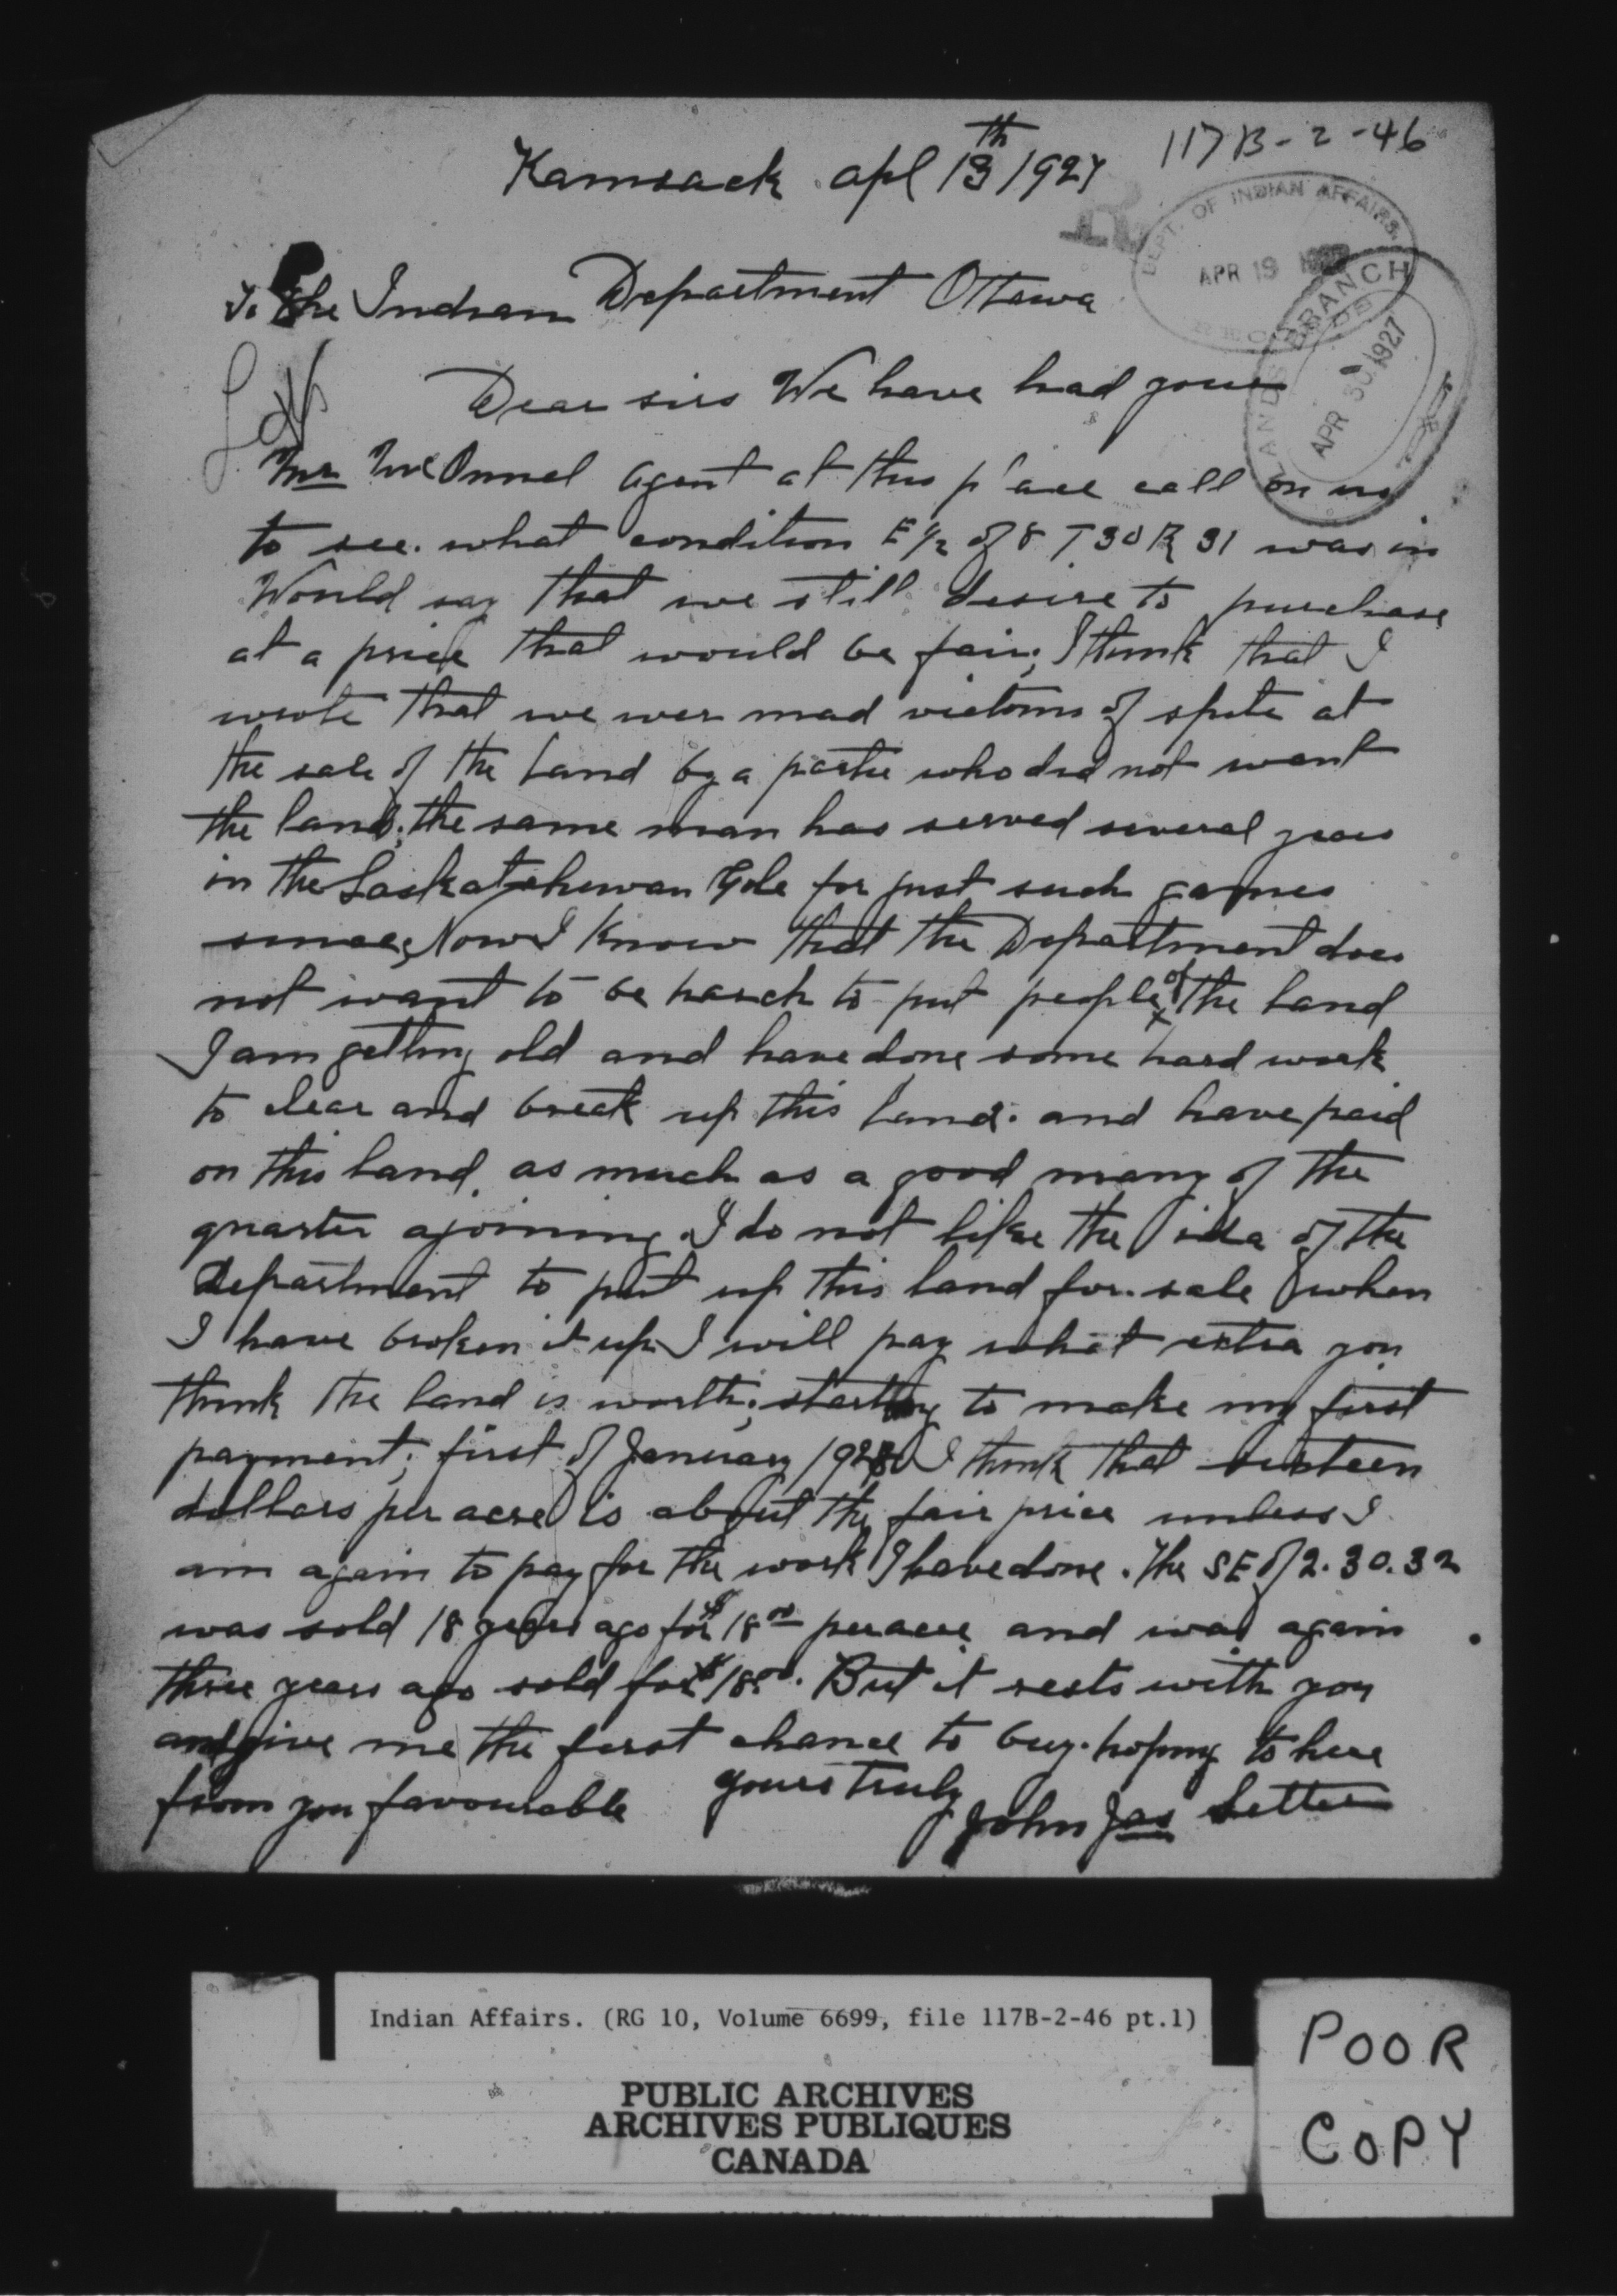 117B-2-46
Kamsack apl 13th 1927
DEPT. OF INDIAN AFFAIRS
APR 19
LANDS BRANCH
APR 30 1927
To The Indian Department Ottawa
Dear sirs We have had your
Mr agent at this place call on us
to see. what condition E 1/2 of 8 T 30 R 31 was in
Would say that we still desire to purchase
at a price that would be fair; I think that I
wrote that we wer mad victoms of spite at
the sale of the land by a partie who did not want
the land; the same man has served several years
in the Saskatchewan for just such games
since, Now I know that the Department does
not want to be harsh to put people of the land
I am getting old and have done some hard work
to clear and break up this land. and have paid
on this land. as much as a good many of the
quarter ajoining. I do not like the idea of the
Department to put up this land for sale when
I have broken it up I will pay what extra you
think the land is worth; starting to make my first
payment; first of January 1928 I think that
dollars per acre is about the fair price unless I
am again to pay for the work I have done. The SE of 2.30.32
was sold 18 years ago for $18.00 per acre and was again
three years ago sold for $18.00. But it rests with you
and give me the first chance to buy. hoping to here
from you favourable yours truly
John Jas Setter
Indian Affairs. (RG 10, Volume 6699, file 117B-2-46 pt.1)
PUBLIC ARCHIVES
ARCHIVES PUBLIQUES
CANADA
POOR
COPY